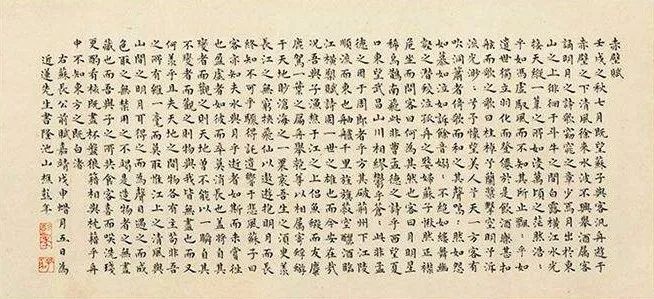 赤壁賦
壬戌之秋七月既望蘇子與客汎舟遊于
赤壁之下清風徐來水波不興舉酒屬客
誦明月之詩歌窈窕之章少焉月出於東
山之上徘徊于斗牛之間白露橫江水光
接天縱一葦之所如淩萬頃之茫然浩:
乎如馮虛馭風而不知其所止飄:乎如
遺世獨立羽化而登僊於是飲酒樂甚扣
舷而歌之歌曰桂棹兮蘭槳擊空明兮泝
流光渺:兮予懷望美人兮天一方客有
吹洞簫者倚歌而和之其聲嗚:然如怨
如慕如泣如訴餘音嫋:不絕如縷舞幽
壑之潛蛟泣孤舟之嫠婦蘇子愀然正襟
危坐而問客曰何為其然也客曰月明星
稀烏鵲南飛此非曹孟德之詩乎西望夏
口東望武昌山川相繆鬱乎蒼:此非孟
德之困于周郎者乎方其破荊州下江陵
順流而東也舳艫千里旌旗蔽空釃酒臨
江橫槊賦詩固一世之雄也而今安在哉
況吾與子漁樵于江之上侶魚鰕而友麋
鹿駕一葉之扁舟舉匏尊以相屬寄蜉蝣
于天地眇滄海之一粟哀吾生之須臾羨
長江之無窮挾飛仙以遨遊抱明月而長
終知不可乎驟得託遺響于悲風蘇子曰
客亦知夫水與月乎逝者如斯而未嘗往
也盈虛者如彼而卒莫消長也蓋將自其
變者而觀之則天地曾不能以一瞬自其
不變者而觀之則物與我皆無盡也而又
何羨乎且夫天地之間物各有主苟非吾
之所有雖一毫而莫取惟江上之清風與
山間之明月耳得之而為聲目遇之而成
色取之無禁用之不竭是造物者之無盡
藏也而吾與子之所共食客喜而笑洗殘
更酌肴核既盡杯盤狼籍相與枕藉乎舟
中不知東方之既白
右蘇長公前賦嘉靖戊申蜡月五日為
近蓮先生書隆池山樵彭年